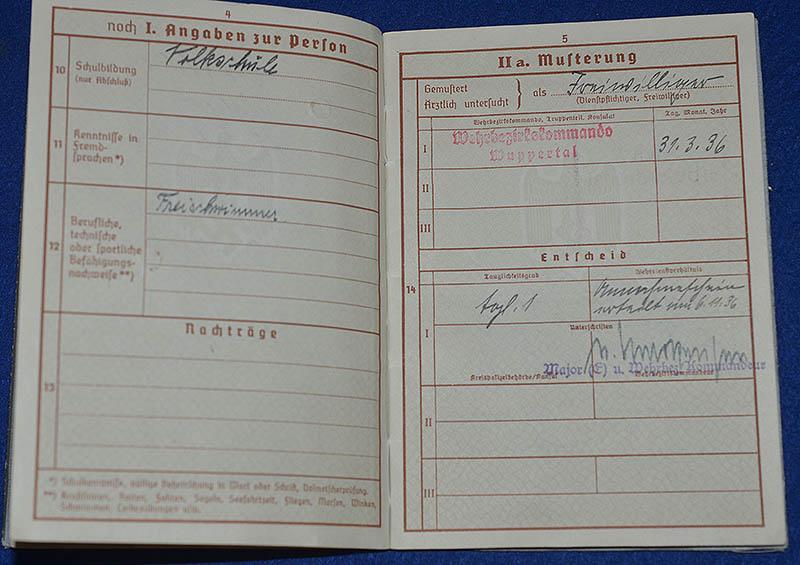 4
noch I. Angaben zur Person
10
Schulbildung
(nur Abschluß)
Volksschule
11
Kenntnisse in
Fremd-
sprachen*)
12
Berufliche,
technische
oder sportliche
Befähigungs-
nachweise**)
Freischwimmer
Nachträge
13
*) Schulkenntnisse, völlige Beherrschung in Wort oder Schrift, Dolmetscherprüfung.
**) Kraftfahren, Reiten, Fahren, Segeln, Seefahrtzeit, Fliegen, Morsen, Winken,
5
IIa. Musterung
Gemustert
Ärztlich untersucht
als
Freiwilliger
(Dienstpflichtiger, Freiwilliger)
Wehrbezirkskommando, Truppenteil, Konsulat
Tag, Monat, Jahr
I
Wehrbezirkskommando
Wuppertal
31.3.36
II
III
Entscheid
14
Tauglichkeitsgrad
Wehrdienstverhältnis
I
tgl. 1
Annahmeschein
erteilt am 6.11.36
Unterschriften
Major (E) u. Wehrbez. Kommandeur
Kreispolizeibehörde/Konsul
II
III